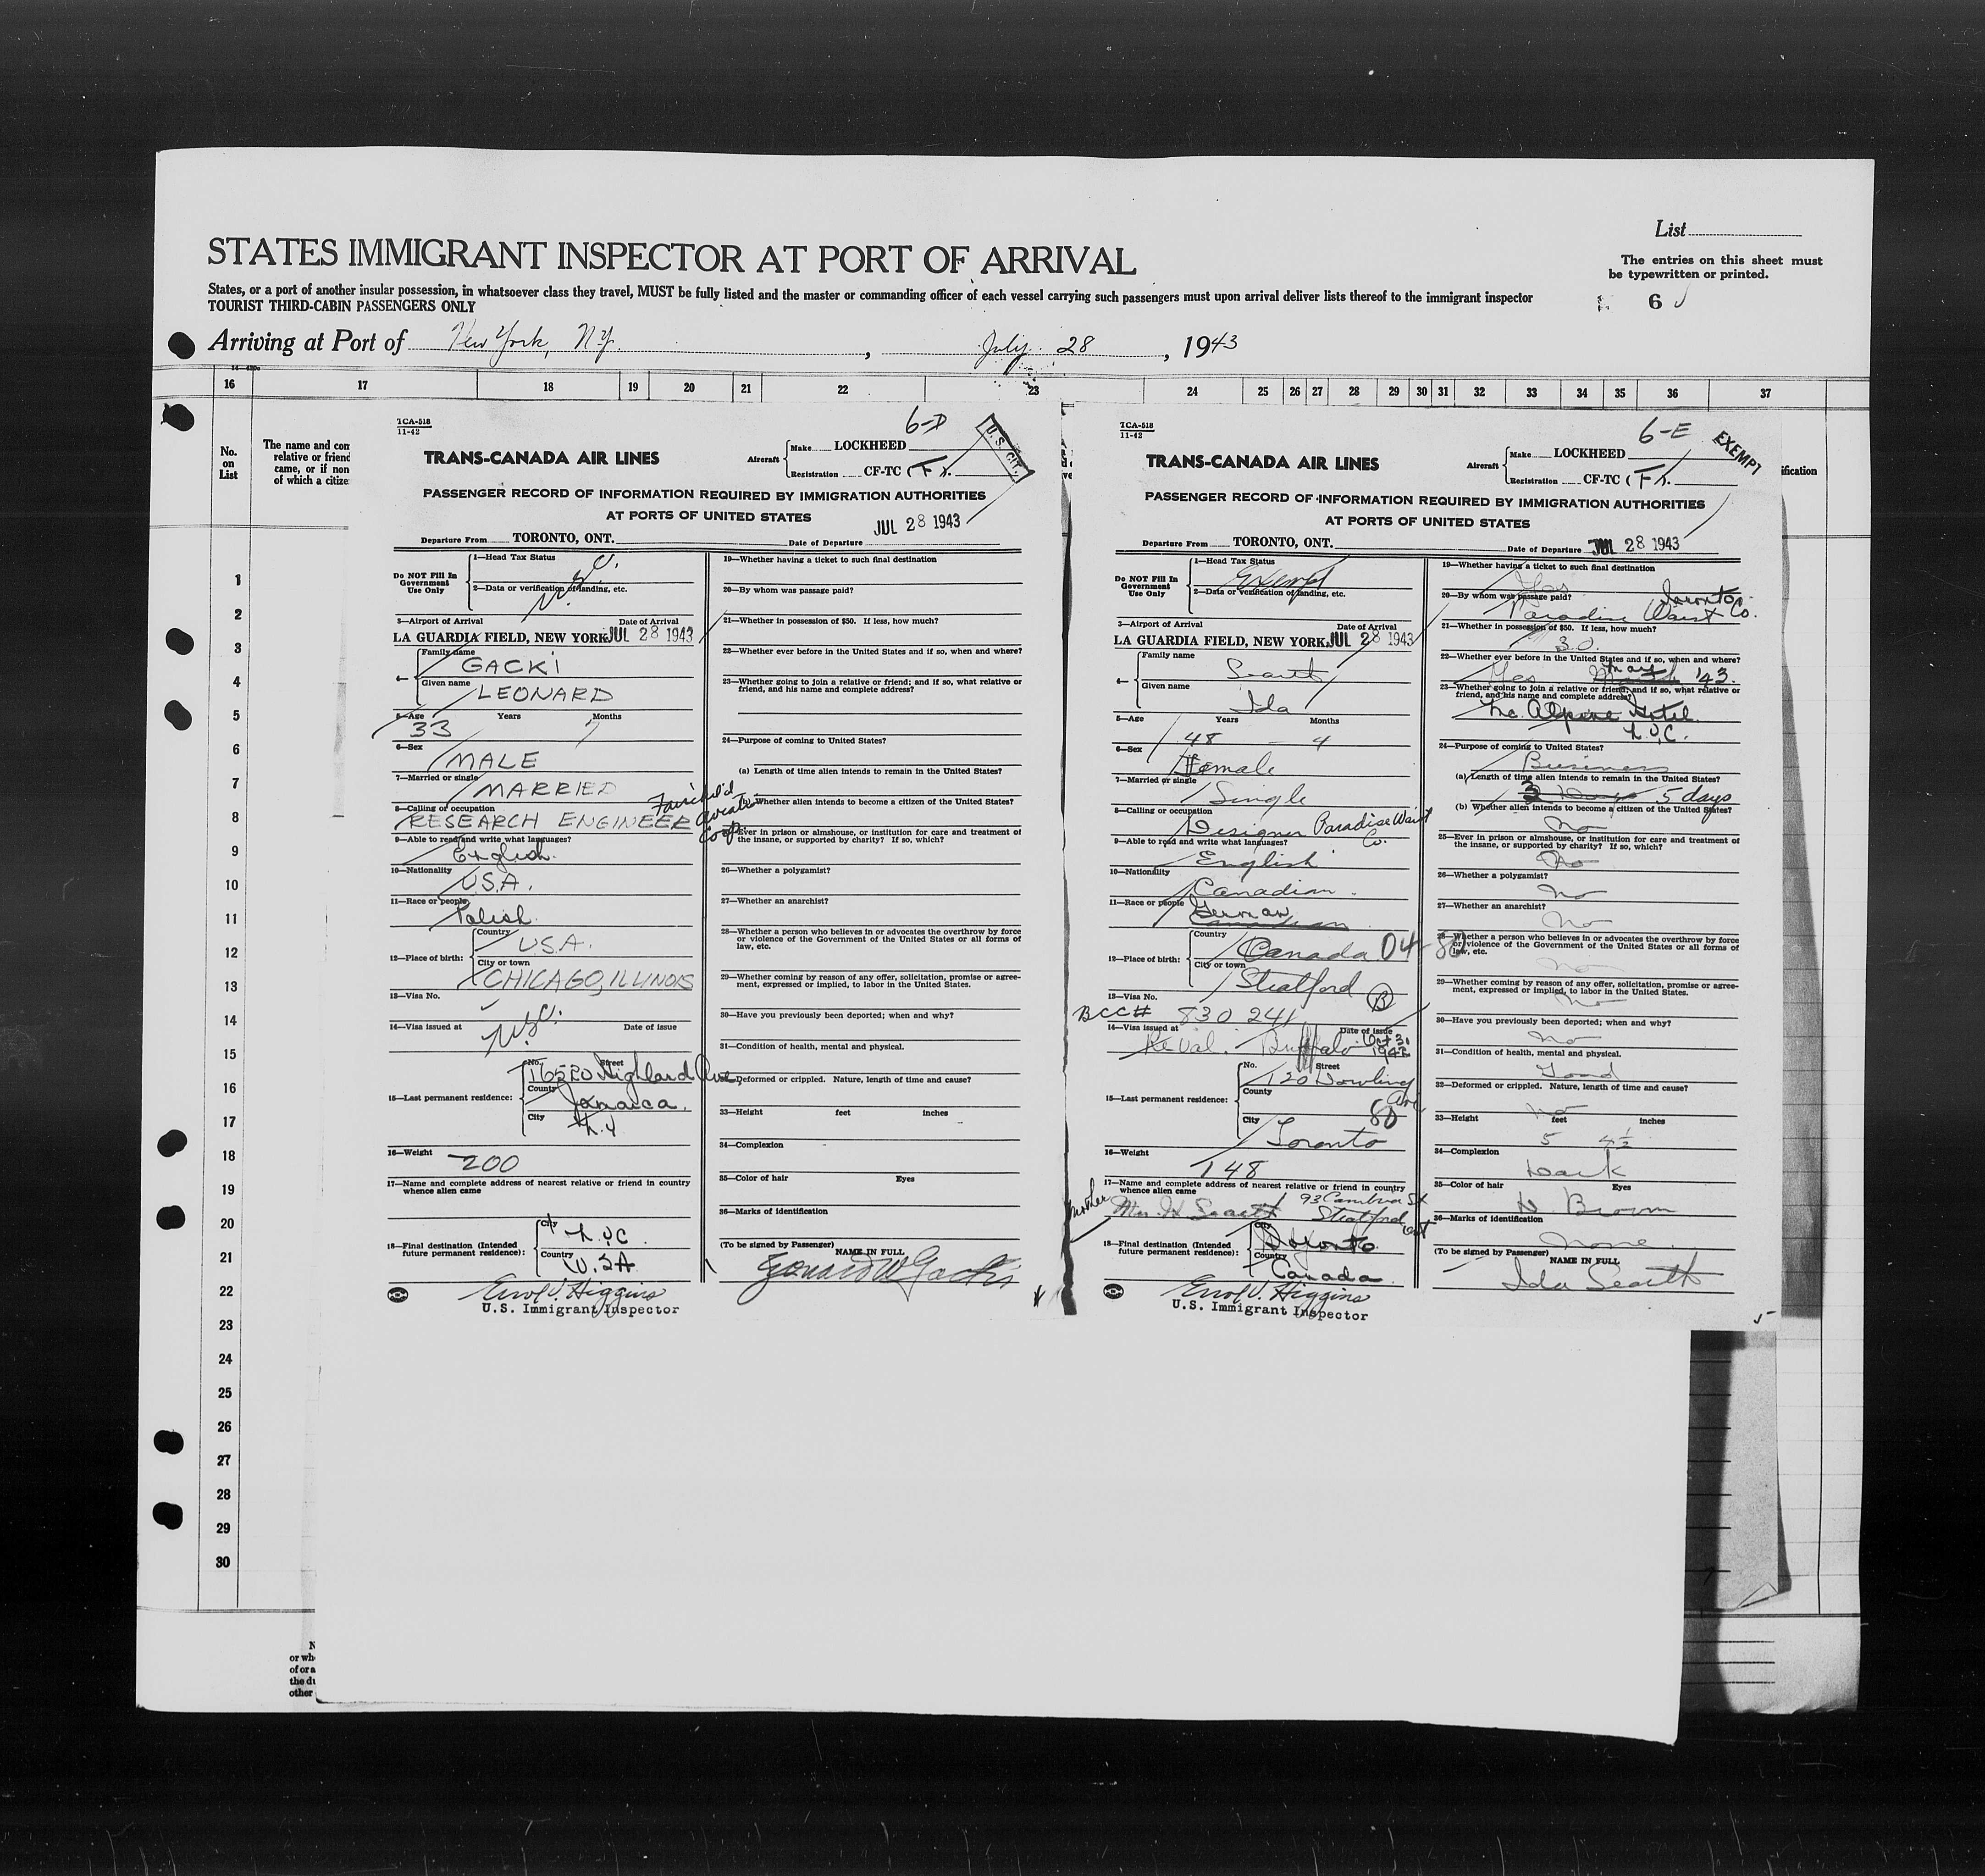 List
STATES IMMIGRANT INSPECTOR AT PORT OF ARRIVAL
The entries on this sheet must
be typewritten or printed.
States, or a port of another insular possession, in whatsoever class they travel, MUST be fully listed and the master or commanding officer of each vessel carrying such passengers must upon arrival deliver lists thereof to the immigrant inspector
TOURIST THIRD-CABIN PASSENGERS ONLY
6
Arriving at Port of New York, N.Y. , July 28 , 1943
16 17 18 19 20 21 22 23 24 25 26 27 28 29 30 31 32 33 34 35 36 37
No.
on
List
The name and con
relative or friend
came, or if non
of which a citize
ification
1
2
3
4
5
6
7
8
9
10
11
12
13
14
15
16
17
18
19
20
21
22
23
24
25
26
27
28
29
30
N
or wh
of or a
the du
other
TCA-518
11-42
6-D
U.S. CIT.
TRANS-CANADA AIR LINES
Aircraft Make LOCKHEED
Registration CF-TC (F).
PASSENGER RECORD OF INFORMATION REQUIRED BY IMMIGRATION AUTHORITIES
AT PORTS OF UNITED STATES
JUL 28 1943
Departure From TORONTO, ONT. Date of Departure
Do NOT Fill In
Government
Use Only
1—Head Tax Status
2—Data or verification of landing, etc.
3—Airport of Arrival Date of Arrival
LA GUARDIA FIELD, NEW YORK JUL 28 1943
4— Family name
GACKI
Given name
LEONARD
5—Age Years Months
33 7
6—Sex
MALE
7—Married or single
MARRIED
8—Calling or occupation
RESEARCH ENGINEER
9—Able to read and write what languages?
English.
10—Nationality
U.S.A.
11—Race or people
Polish.
12—Place of birth: Country
U.S.A.
City or town
CHICAGO, ILLINOIS
13—Visa No.
14—Visa issued at Date of issue
15—Last permanent residence: No. Street
16520 Highland Ave,
County
Jamaica.
City
N.Y
16—Weight
200
17—Name and complete address of nearest relative or friend in country
whence alien came
18—Final destination (Intended
future permanent residence): City
N.Y.C.
Country
U.S.A.
Errol V. Higgins
U.S. Immigrant Inspector
19—Whether having a ticket to such final destination
20—By whom was passage paid?
21—Whether in possession of $50. If less, how much?
22—Whether ever before in the United States and if so, when and where?
23—Whether going to join a relative or friend; and if so, what relative or
friend, and his name and complete address?
24—Purpose of coming to United States?
(a) Length of time alien intends to remain in the United States?
(b) Whether alien intends to become a citizen of the United States?
25—Ever in prison or almshouse, or institution for care and treatment of
the insane, or supported by charity? If so, which?
26—Whether a polygamist?
27—Whether an anarchist?
28—Whether a person who believes in or advocates the overthrow by force
or violence of the Government of the United States or all forms of
law, etc.
29—Whether coming by reason of any offer, solicitation, promise or agree-
ment, expressed or implied, to labor in the United States.
30—Have you previously been deported; when and why?
31—Condition of health, mental and physical.
32—Deformed or crippled. Nature, length of time and cause?
33—Height feet inches
34—Complexion
35—Color of hair Eyes
36—Marks of identification
(To be signed by Passenger) NAME IN FULL
Leonard W Gacki
TCA-518
11-42
6-E
EXEMPT
TRANS-CANADA AIR LINES
Aircraft Make LOCKHEED
Registration CF-TC (F).
PASSENGER RECORD OF INFORMATION REQUIRED BY IMMIGRATION AUTHORITIES
AT PORTS OF UNITED STATES
Departure From TORONTO, ONT. Date of Departure JUL 28 1943
Do NOT Fill In
Government
Use Only
1—Head Tax Status
Exempt
2—Data or verification of landing, etc.
3—Airport of Arrival Date of Arrival
LA GUARDIA FIELD, NEW YORK JUL 28 1943
4— Family name
Given name
Ida
5—Age Years Months
48 - 4
6—Sex
Female
7—Married or single
Single
8—Calling or occupation
Designer Paradise Waist
Co.
9—Able to read and write what languages?
English
10—Nationality
Canadian.
11—Race or people
German
Canadian
12—Place of birth: Country
Canada 04-80
City or town
Stratford B
13—Visa No.
BCC# 830 241
14—Visa issued at Date of issue
Reval. Buffalo Oct 31
1942
15—Last permanent residence: No. Street
120 Dowling
Ave.
County
80
City
Toronto
16—Weight
148
17—Name and complete address of nearest relative or friend in country
whence alien came
mother
93 Cambria St
Stratford Ont
18—Final destination (Intended
future permanent residence): City
Toronto.
Country
Canada.
Errol V. Higgins
U.S. Immigrant Inspector
19—Whether having a ticket to such final destination
Yes
20—By whom was passage paid?
Toronto
Paradise Waist Co.
21—Whether in possession of $50. If less, how much?
30.
22—Whether ever before in the United States and if so, when and where?
Yes May March '43.
23—Whether going to join a relative or friend; and if so, what relative or
friend, and his name and complete address?
Mc Alpine Hotel.
N.Y.C.
24—Purpose of coming to United States?
Business
(a) Length of time alien intends to remain in the United States?
3 Days 5 days
(b) Whether alien intends to become a citizen of the United States?
No
25—Ever in prison or almshouse, or institution for care and treatment of
the insane, or supported by charity? If so, which?
No
26—Whether a polygamist?
No
27—Whether an anarchist?
No
28—Whether a person who believes in or advocates the overthrow by force
or violence of the Government of the United States or all forms of
law, etc.
No
29—Whether coming by reason of any offer, solicitation, promise or agree-
ment, expressed or implied, to labor in the United States.
No
30—Have you previously been deported; when and why?
No
31—Condition of health, mental and physical.
Good
32—Deformed or crippled. Nature, length of time and cause?
No
33—Height feet inches
5 4½
34—Complexion
Dark
35—Color of hair Eyes
D. Brown
36—Marks of identification
None.
(To be signed by Passenger) NAME IN FULL
Ida